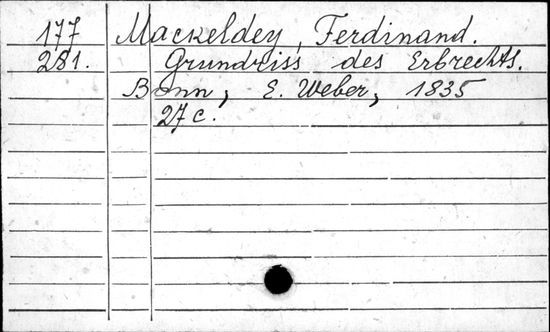 177 Mackeldey, Ferdinand.
281. Grundriss des Erbrechts.
Bonn, E. Weber, 1835
27 c.